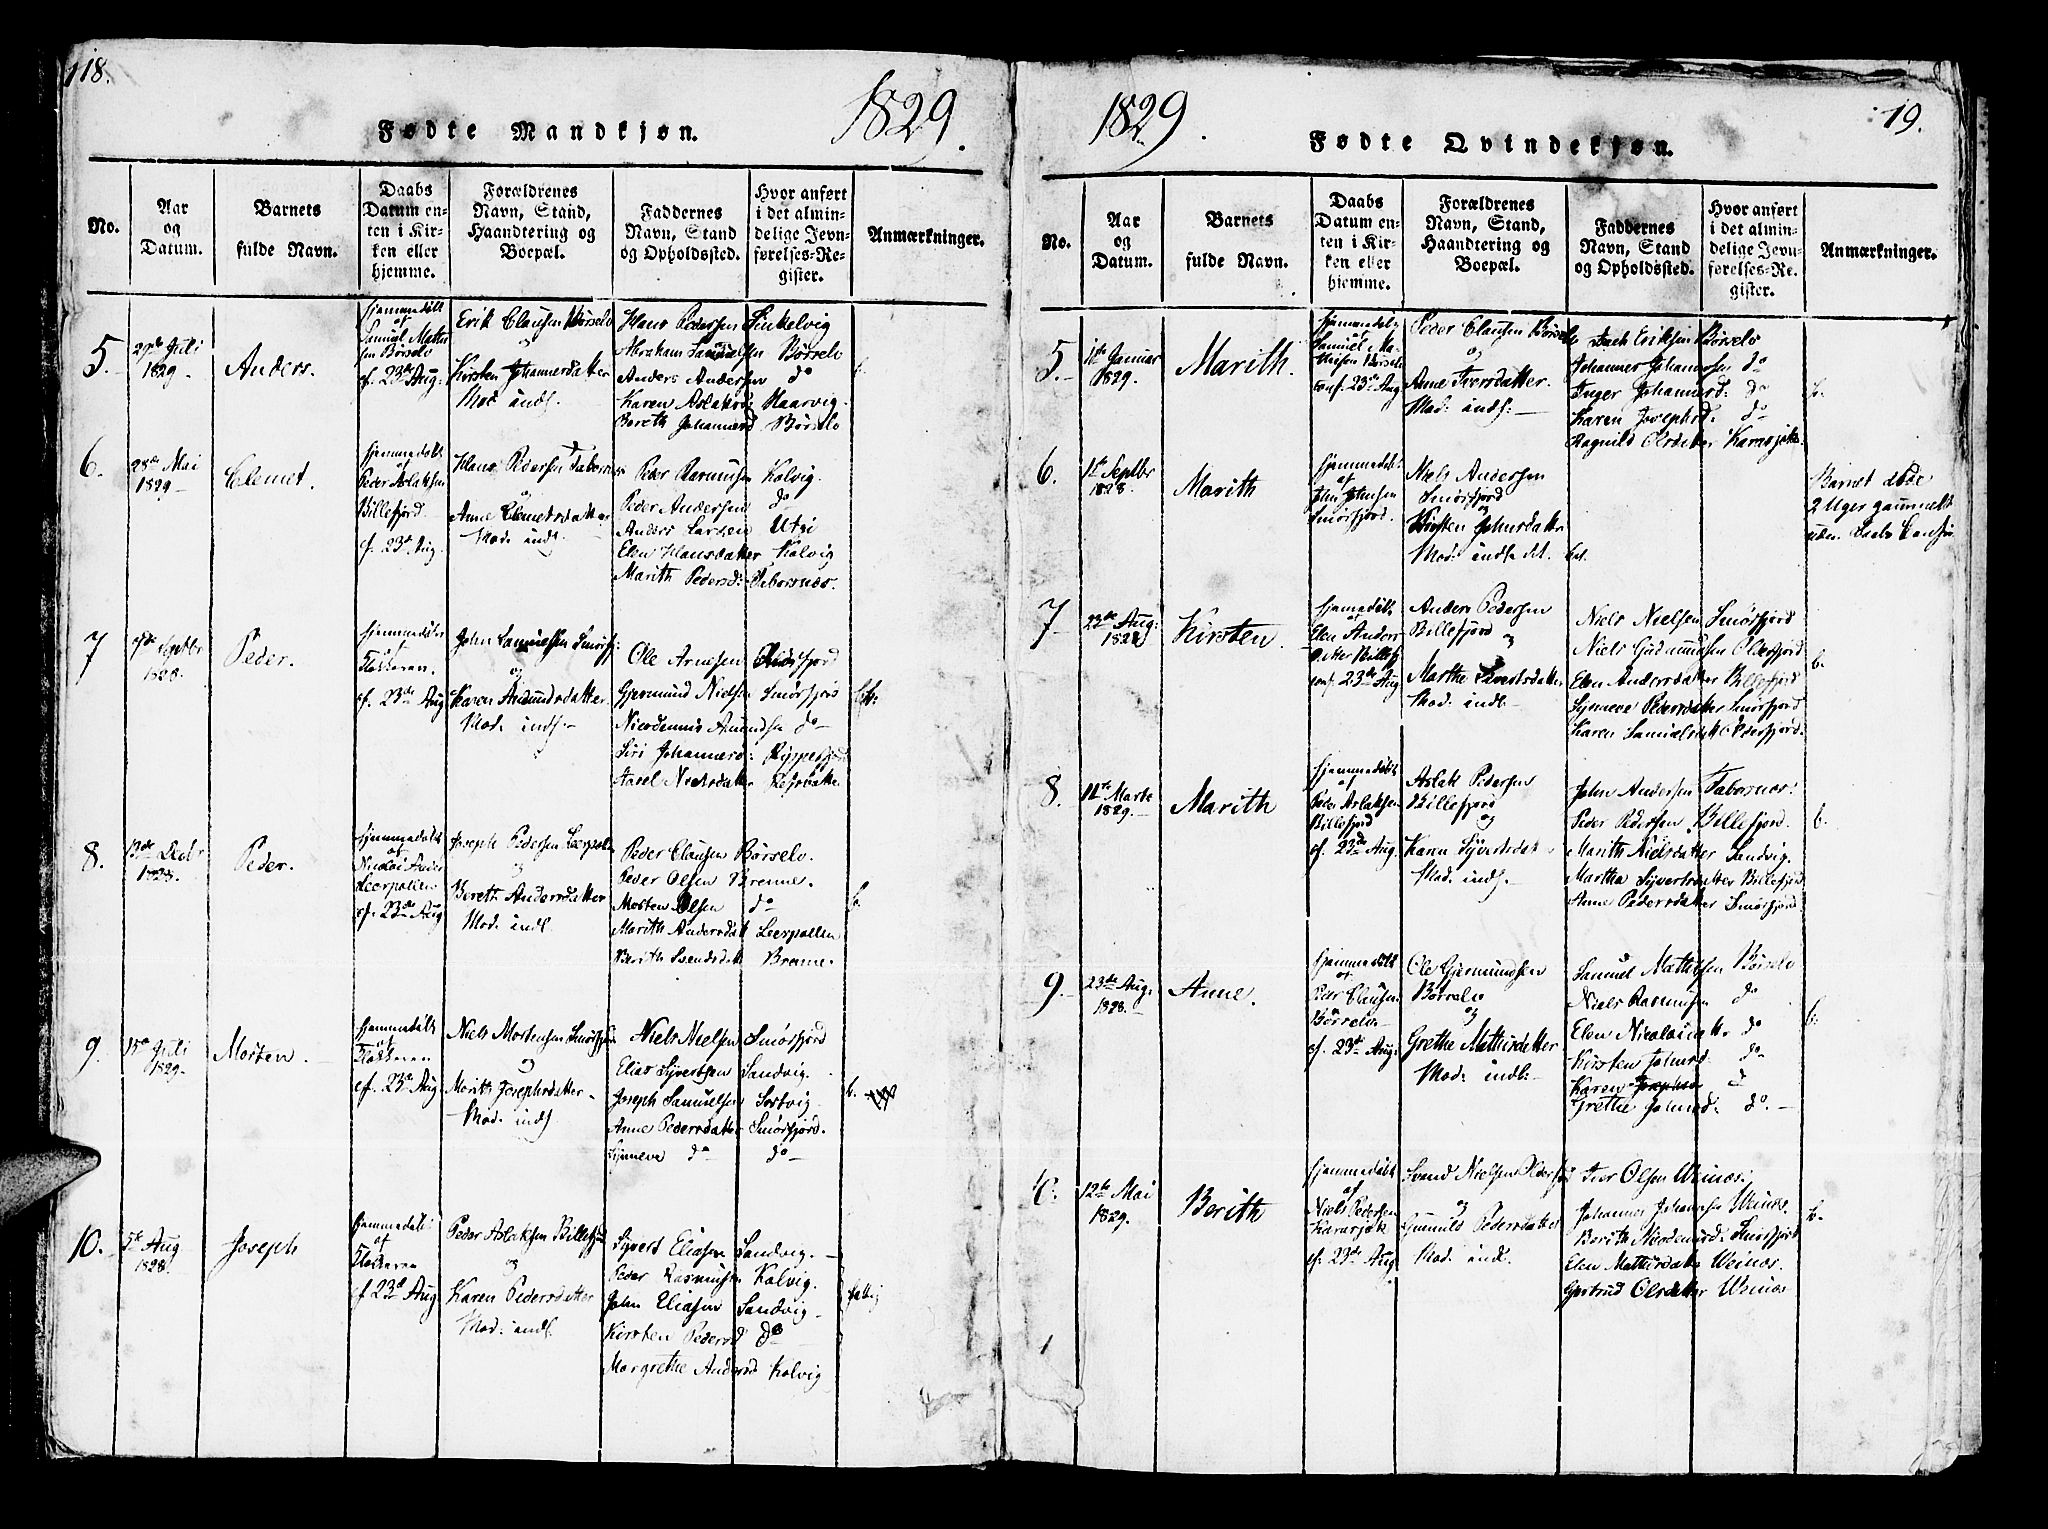 118.
1829.
Fødte Mandkjøn.
No.
Aar og Datum.
Barnets fulde Navn.
Daabs Datum enten i Kirken eller hjemme.
Forældrenes Navn, Stand, Haandtering og Boepæl.
Faddernes Navn, Stand og Opholdssted.
Hvor anført i det almindelige Jevnførelses-Register.
Anmærkninger.
5.
Juli
1829.
Anders.
hjemmedöbt
af
Samuel Mathisen Börselv
cf. 23de Aug:
Erik Clausen Börselv
og
Kirsten Johannesdatter
Mod: indf. -
Hans Pedersen
Abraham Samuelsen Börselv
Anders Andersen do
Karen Aslaksd:
Bereth Johannesd. Börselv
6.
28de Mai
1829
Clemet.
hjemmedöbt
af
Peder Aslaksen
Billefjord.
cf. 23de Aug.
Hans Pedersen Tabornæs
og
Anne Clemetsdatter
Mod: indf.
Peder Rasmussen Kolvig.
Peder Andersen do
Anders Larsen
Elen Hansdatter Kolvig
Marith Pedersd: Tabornæs.
7
Septbr
1828.
Peder.
hjemmedöbt
cf. 23de Aug
John Samuelsen Smörfj:
og
Karen Amundsdatter
Mod: indf. -
Ole Arnesen
Gjermund Nielsen Smörfjord
Nicodemus Amundsen do
Siri Johannesd:
8.
13de Decbr
1828.
Peder.
hjemmedöbt
af
Leerpollen
cf. 23de Aug
Joseph Pedersen Leerpollen
og
Bereth Andersdatter
Mod: indf.
Peder Clausen Börselv.
Peder Olsen Brenne.
Morten Olsen do
Marith Andersdatt Leerpollen
Berith Svendsdatt Brenne.
b.
9.
15de Juli
1829.
Morten.
hjemmedöbt
af
cf. 23de Aug:
Niels Mortensen Smörfjord
og
Marith Josephsdatter
Mod: indf
Niels Nielsen Smörfjord
Elias Syvertsen Sandvig.
Joseph Samuelsen
Anne Pedersdatter Smörfjord.
Synneve do do
b.
10.
5te Aug
1828.
Joseph
hjemmedöbt
af
cf 23de Aug
Peder Aslaksen Billefjord
og
Karen Pedersdatter
Mod: indf.
Syvert Eliasen Sandvig. -
Peder Rasmussen Kolvig.
John Eliasen Sandvig
Kirsten Pedersd do
Margrethe Andersd Kolvig
19.
1829.
Fødte Qvindekjøn.
No.
Aar og Datum.
Barnets fulde Navn.
Daabs Datum enten i Kirken eller hjemme.
Forældrenes Navn, Stand, Haandtering og Boepæl.
Faddernes Navn, Stand og Opholdssted.
Hvor anført i det almindelige Jevnførelses-Register.
Anmærkninger.
5.
Januar
1829.
Marith.
hjemmedöbt
Samuel Mathisen Börselv
conf. 23de Aug
Peder Clausen Börselv
og
Anne Iversdatter.
Mod: indf: -
Eriksen Börselv
Johannes Johannesen do
Inger Johannesd: do
Karen Josephsd. do
Ragnild Olsdatter Karasjok
b.
6.
Septbr
1828.
Marith
hjemmedöbt
af
John Johnsen
Smörfjord.
Niels Andersen
Smörfjord
og
Kirsten Johnsdatter
Mod: indf.
Barnet döde
2 Uger gammelt
uden Daabs
7
23de Aug:
Kirsten
hjemmedöbt
af
Elen Andersdatter Billefj
conf. 23de Aug
Anders Pedersen
Billefjord
og
Marthe Sivertsdatter
Mod: indf. -
Niels Nielsen Smörfjord
Niels Gudmundsen Oldersfjord
Elen Andersdatter Billefjord
Synneve Pedersdatter Smörfjord
Karen Samuelsdatt Oldersfjord.
b.
8.
Marts
1829.
Marith
hjemmedöbt
af
Peder Aslaksen
Billefjord
cf. 23de Aug.
Aslak Pedersen
Billefjord
og
Karen Syvertsdatt
Mod: indf. -
John Andersen Tabornæs:
Peder Pedersen Billefjord.
Marith Nielsdatter Sandvig.
Martha Syvertsdatter Billefjord
Anne Pedersdatter Smörfjord.
b.
9.
23de Aug:
1828.
Anne.
hjemmedöbt
af
Peder Clausen
Börselv
cf. 23de Aug:
Ole Gjermundsen
Börselv
og
Grethe Mathisdatter
Mod: indf: -
Samuel Mathisen Börselv
Niels Rasmusen do
Elen Nicolaidatt do
Kirsten Johnsd. do
Karen
Grethe Johnsd: do. -
b.
12te Mai
1829.
Berith
hjemmedöbt
af
Niels Pedersen
Karasjok
cf. 23de Aug
Svend Nielsen Oldersfjord
og
Gunnild Pedersdatter
Mod: indf.
Iver Olsen Weinæs.
Johannes Johannesen Weinæs.
Berith Nicodemusd: Smörfjord
Elen Mathisdatt Weinæs.
Gjertrud Olsdatter Weinæs
b.
1